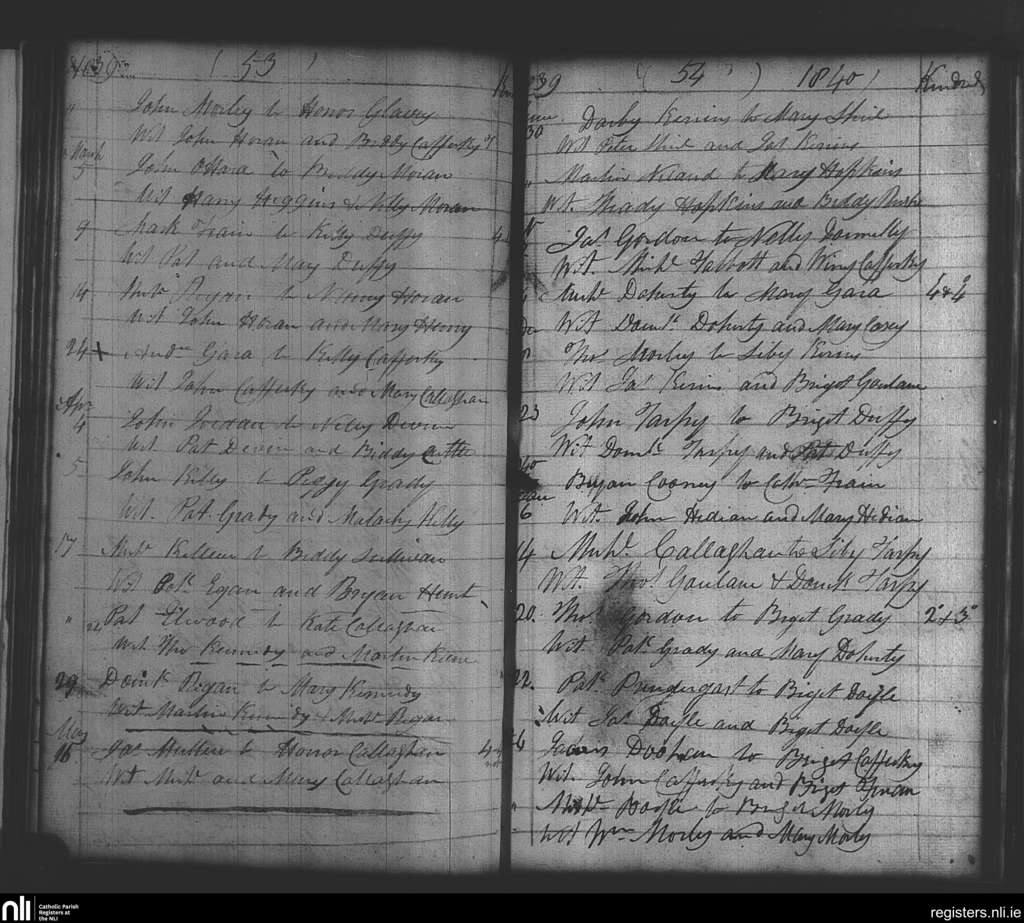 1839 ( 53 )
" John Morley to Honor Glavey
Wit John Horan and Biddy Cafferky
March John OHara to Biddy Moran
Wit Harry Higgins & Nelly Moran
9 Mark Frain to Kitty Duffy 4
Wit Pat and Mary Duffy
14 Mich. Regan to Nancy Horan
Wit John Horan and Mary Henry
24 + Andw Gara to Kitty Cafferky
Wit John Cafferky and Mary Callaghan
Apr
4 John Jordan to Nelly Deveen
Wit. Pat Deveen and Biddy
5 John Kelly to Peggy Grady
Wit. Pat Grady and Malachy Kelly
17 Michl Killeen to Biddy Sullivan
Wit Patk Egan and Bryan Hunt
" 24 Pat Elwood to Kate Callaghan
Wit Thos Kennedy and Martin
29 Domk Regan to Mary Kennedy
Wit Martin Kennedy & Michl Regan
May
16 Jas Mullen to Honor Callaghan 4
Wit Michl and Mary Callaghan
39 ( 54 ) 1840 ) Kindred
30 Darby Kerins to Mary Shiel
Wit Peter Shiel and Jas Kerins
" Martin to Mary Hopkins
Wit. Thady Hopkins and Biddy
Jas. Gordon to Nelly Donnelly
Wit. Michl Talbott and Winy Cafferky
Michl Doherty to Mary Gara 4 & 4
Wit Domk Doherty and Mary Casey
Thos Morley to Siby Kerins
Wit Jas Kerins and Briget Goulane
23 John Tarpy to Briget Duffy
Wit Domk Tarpy and Pat Duffy
40
Jan Bryan Cooney to Cath Frain
6 Wit. John Hedian and Mary Hedian
14 Michl. Callaghan to Siby Tarpy
Wit. Thos Goulane & Domk Tarpy
20. Thos Gordon to Briget Grady 2 & 3
Wit. Patk Grady and Mary Doherty
22. Patk Prendergast to Briget Doyle
Wit Jas Doyle and Briget Doyle
26 James to Briget Cafferky
Wit. John Cafferky and Briget
" Michl to Briget Morly
Wit Wm Morley and Mary Morley
nli Catholic Parish
Registers at
the NLI
registers.nli.ie